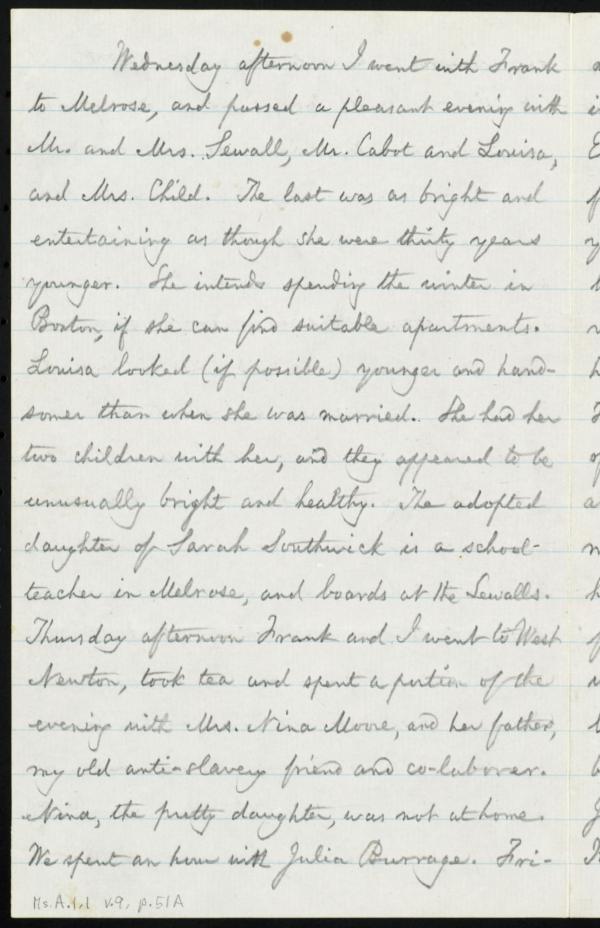 Wednesday afternoon I went with Frank
to Melrose, and passed a pleasant evening with
Mr. and Mrs. Sewall, Mr. Cabot and Louisa,
and Mrs. Child. The last was as bright and
entertaining as though she were thirty years
younger. She intends spending the winter in
Boston, if she can find suitable apartments.
Louisa looked (if possible) younger and hand-
somer than when she was married. She had her
two children with her, and they appeared to be
unusually bright and healthy. The adopted
daughter of Sarah Southwick is a school-
teacher in Melrose, and boards at the Sewalls.
Thursday afternoon Frank and I went to West
Newton, took tea and spent a portion of the
evening with Mrs. Nina Moore, and her father,
my old anti-slavery friend and co-laborer.
Nina, the pretty daughter, was not at home.
We spent an hour with Julia Burrage. Fri-
Ms.A.1.1 v.9, p.51A